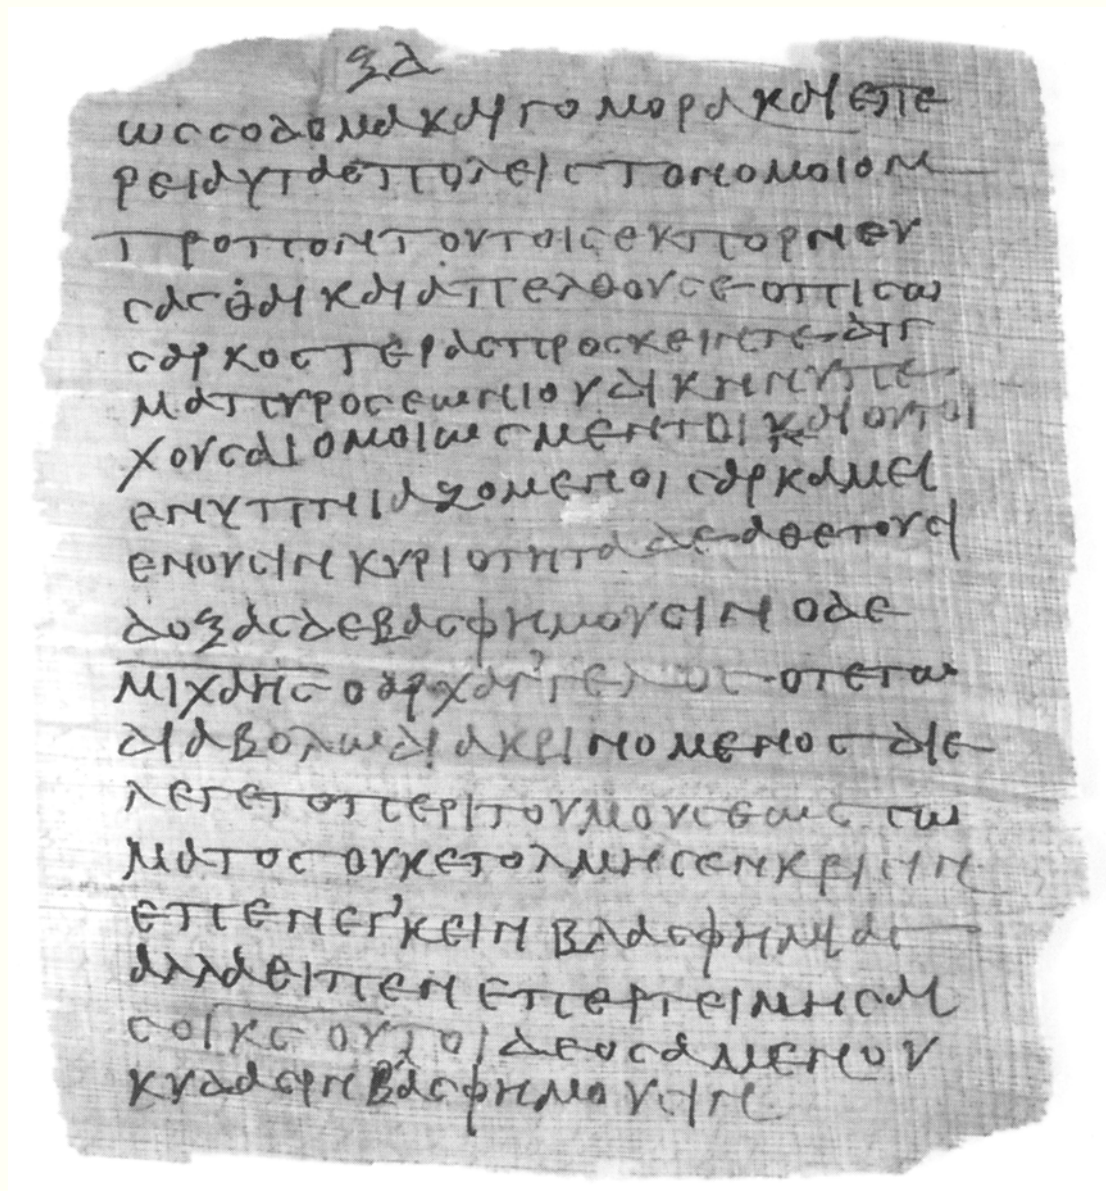 ξδ
ωϲϲοδομακαιγομορακαιεπε
ρειαυταεπολειϲτονομοιον
τροποντουτοιϲεκπορνευ
ϲαϲθαικαιαπελθουϲεοπιϲω
ϲαρκοϲτεραϲπροϲκεινετεδιγ
ματπυροϲεωνιουδικηνυπε
χουϲαιομοιωϲμεντοικαιουτοι
ενυπνιαζομενοιϲαρκαμει
ενουϲινκυριοτηταδεαθετουϲι
δοξαϲδεβλαϲφημουϲινοδε
μιχαηϲοαρχαγ'γελοϲοτετω
διαβολωδιακρινομενοϲδιε
λεγετοπεριτουμουϲεωϲϲω
ματοϲουκετολμηϲενκριϲιν
επενεγ'κεινβλαϲφημιαϲ
αλλαειπενεπερτειμηϲαι
ϲοικ̅ϲ̅ουτοιδεοϲαμενου
κυδαϲινβλαϲφημουϲιν